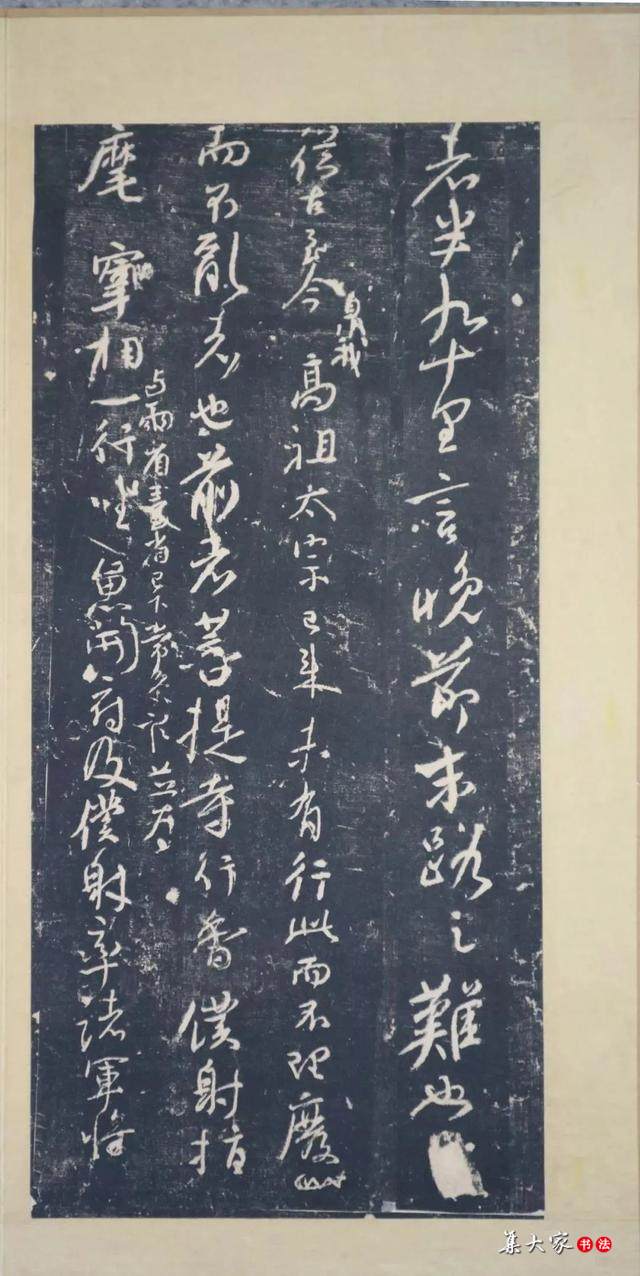 者半九十里言晚節末路之難也
從古至今
臮我
高祖太宗已来未有行此而不理廢此
而不亂者也前者菩提寺行香僕射指
麾宰相
與兩省臺省已下常參官並為
一行坐魚開府及僕射率諸軍將
集大家书法